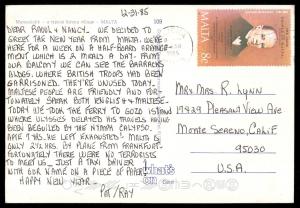 12-31-85
Marsaxlokk - a typical fishing village - MALTA
109
DEAR RAOUL & NANCY. WE DECIDED TO
GREET THE NEW YEAR FROM MALTA. WE'RE
HERE FOR A WEEK ON A HALF-BOARD ARRANGE-
MENT WHICH IS 2 MEALS A DAY. FROM
OUR BALCONY WE CAN SEE THE BARRACKS
BLDGS. WHERE BRITISH TROOPS HAD BEEN
GARRISONED. THEY'RE UNUSED TODAY.
MALTESE PEOPLE ARE FRIENDLY AND FOR-
TUNATELY SPEAK BOTH ENGLISH & MALTESE.
TODAY WE TOOK THE FERRY TO GOZO ISLAND
WHERE ULYSSES DELAYED HIS TRAVELS HAVING
BEEN BEGUILED BY THE NYMPH CALYPSO.
ARE THIS HE LEFT EXHAUSTED! MALTA IS
ONLY 2½ HRS. BY PLANE FROM FRANKFURT.
FORTUNATELY THERE WERE NO TERRORISTS
TO MEET US - JUST A TAXI DRIVER
WITH OUR NAME ON A PIECE OF PAPER.
HAPPY NEW YEAR -
PAT/RAY
MALTA 8c
MR & MRS R. LYNN
PLEASANT VIEW AVE
MONTE SERENO, CALIF.
95030
U.S.A.
what's
on